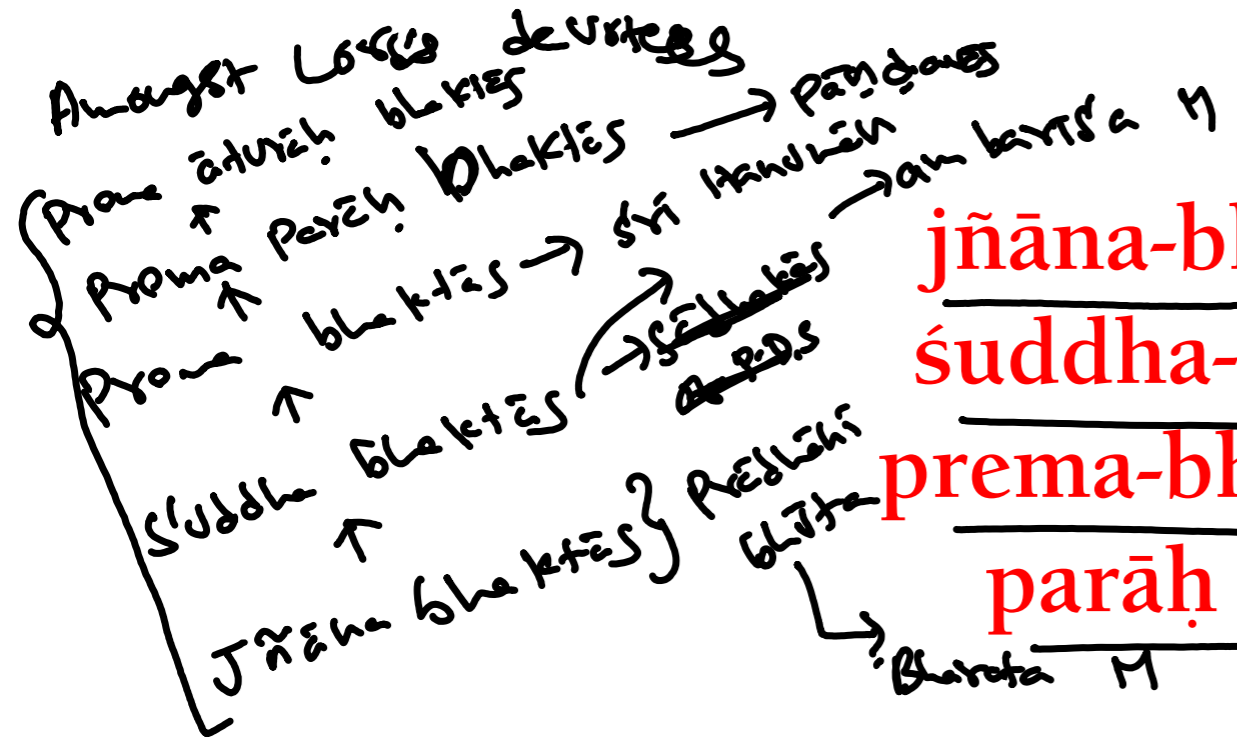 Amongst Lord's devotees
Prema āturāḥ bhaktās
Prema parāḥ bhaktās → pāṇḍavas
Prema bhaktās → śrī Hanumān
Śuddha bhaktās → ambarīśa M
sādhakās
P.D.S
Jñāna bhaktās } Prādhānī
bhūta
Bharata M
jñāna-bh
śuddha-
prema-bh
parāḥ